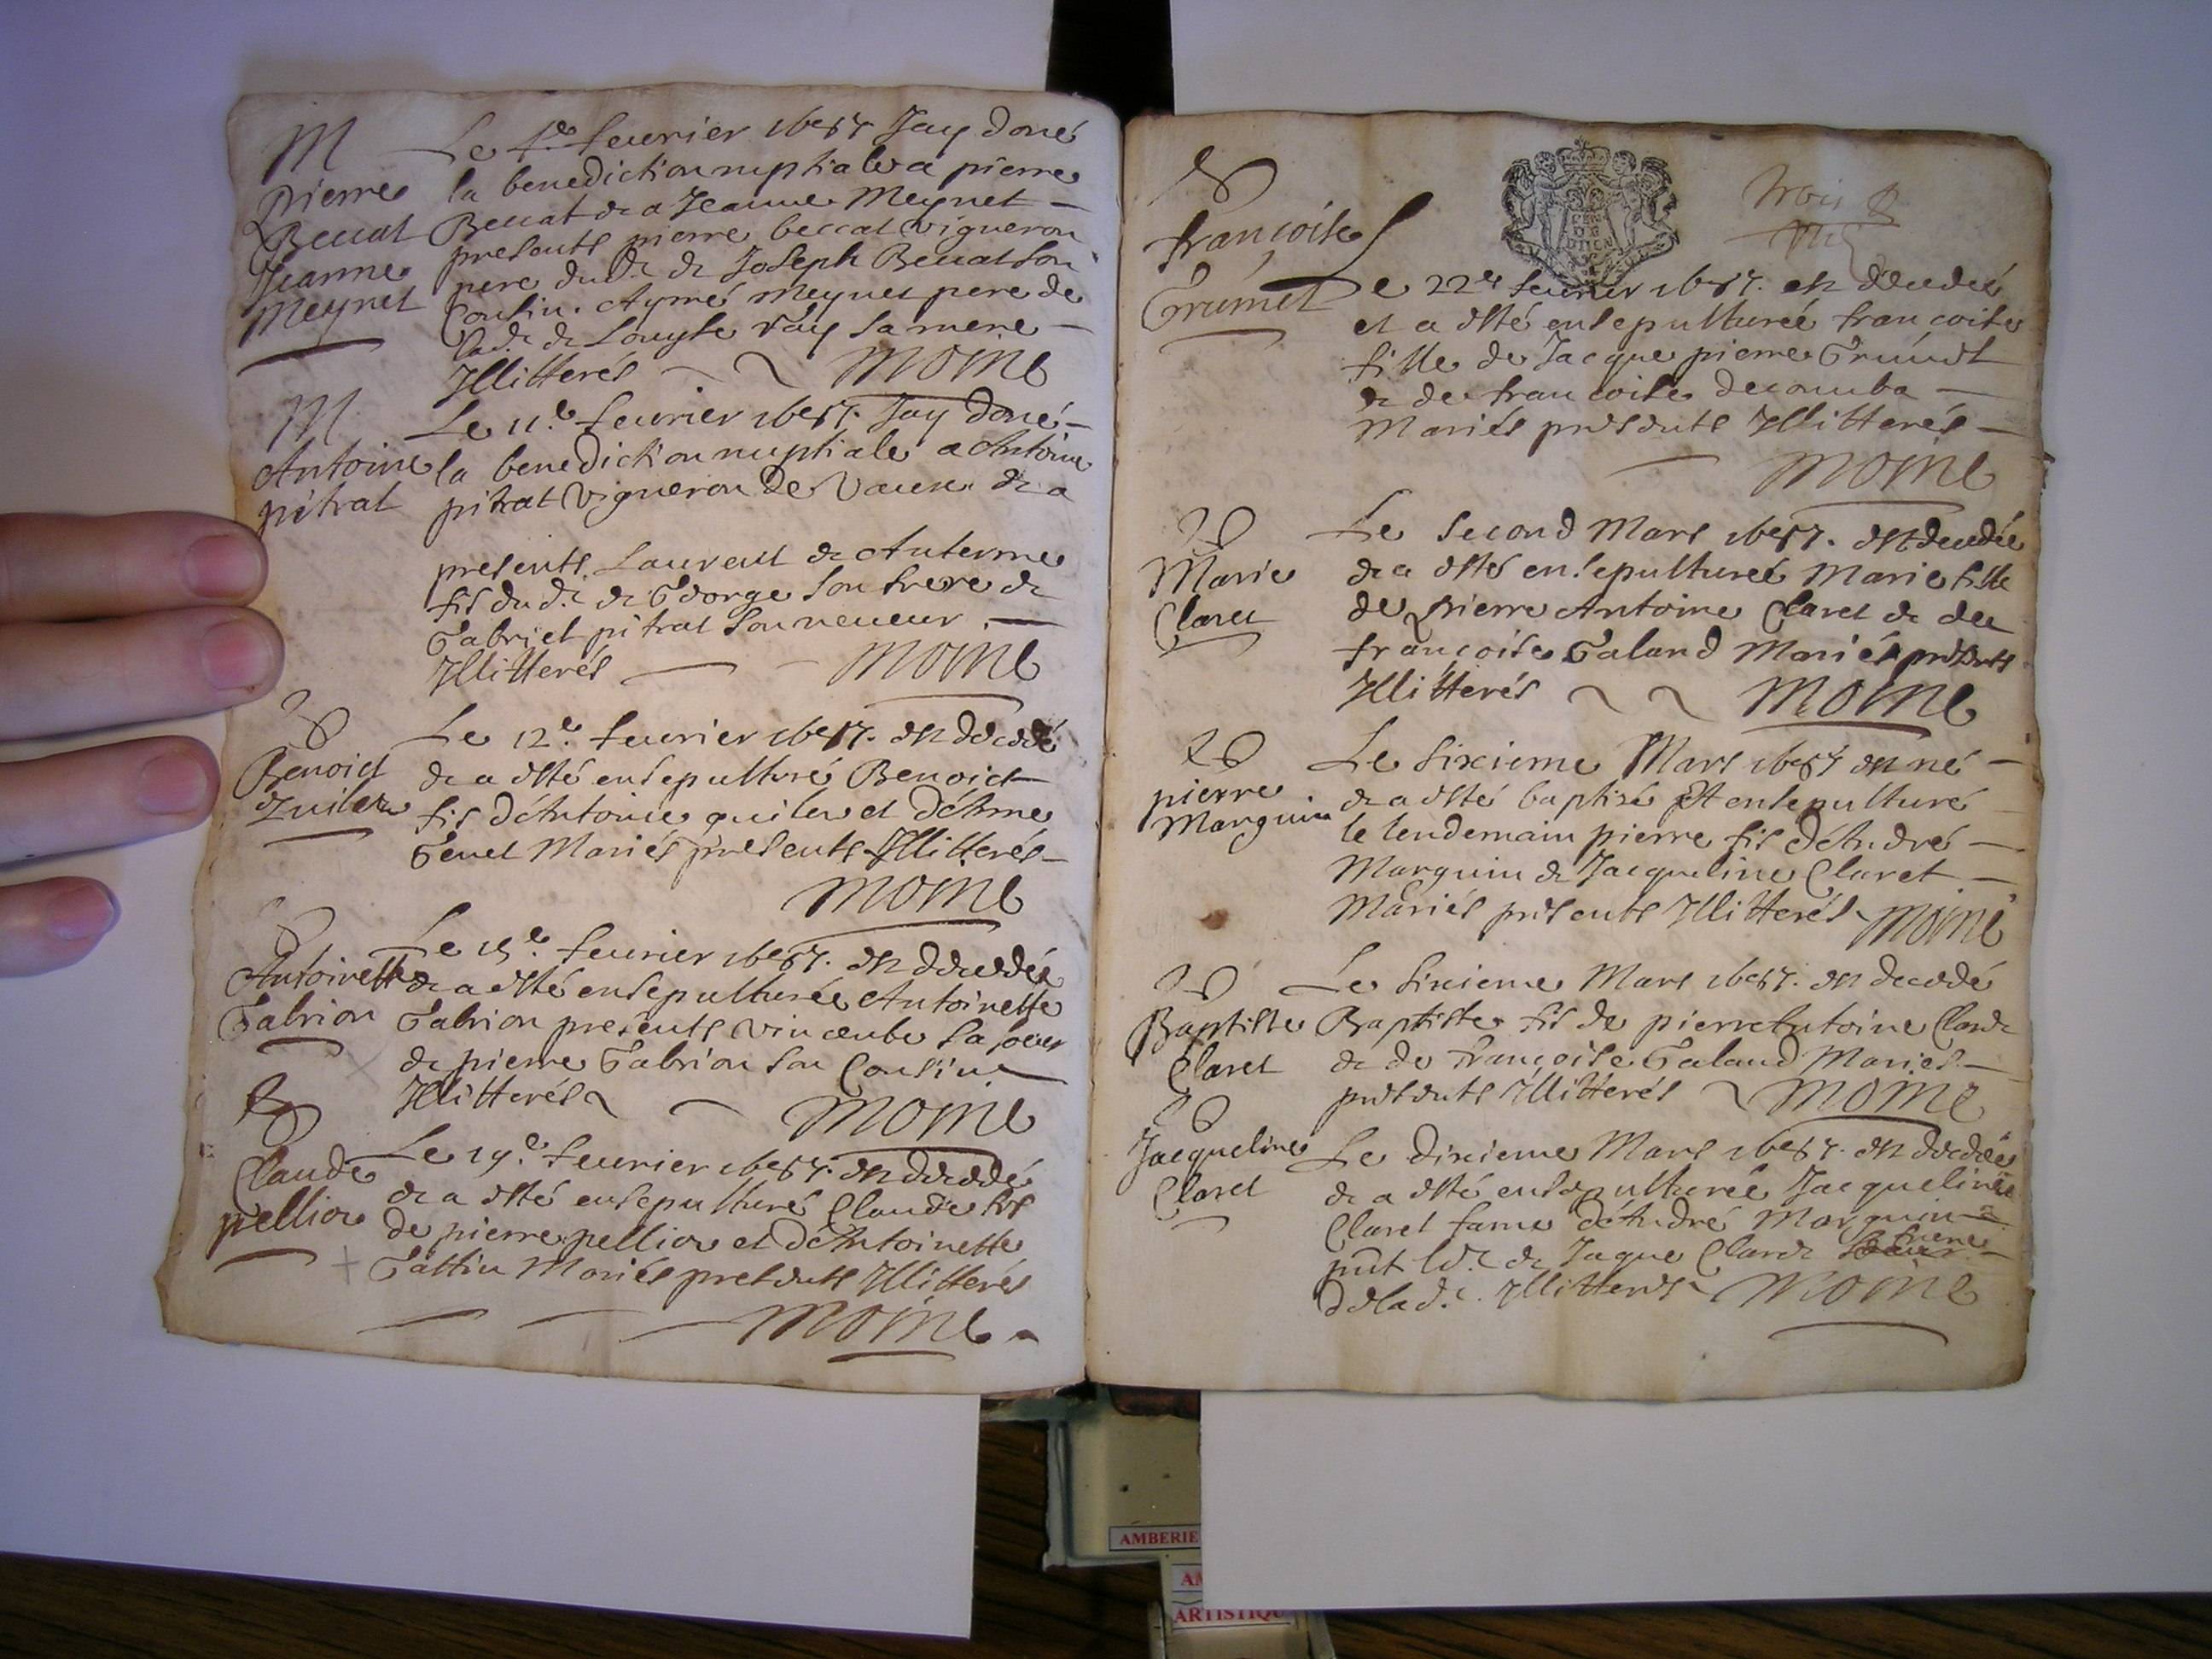 M
Pierre
Beccat
Jeanne
Meynet
Le 4e feurier 1687 Jay doné
la benediction nuptiale a pierre
Beccat & a Jeanne Meynet
presents pierre beccat vigneron
pere dud. & Joseph Beccat son
Cousin. Aymé Meynet pere de
lad. & Louyse fay sa mere
Illitterés MOINE
M
Antoine
pitrat
Le 11e feurier 1687. Jay doné
la benediction nuptiale a Antoine
pitrat vigneron de Vaux & a
presents Laurent & Anterme
fis du d. & George son frere &
Gabriel pitrat son neueur.
Illitterés MOINE
Benoict
quiler
Le 12e feurier 1687. est decedé
& a esté ensepulturé Benoict
fis d'Antoine quiler et d'Anne
Genet Mariés presents Illitterés
MOINE
Antoinette
Gabrion
Le 15e feurier 1687. est decedée
& a esté ensepulturée Antoinette
Gabrion presents vincente sa soeur
& pierre Gabrion son Cousin.
Illitterés MOINE
Claude
pellion
Le 19e feurier 1687. est decedé
& a esté ensepulturé Claude fis
de pierre pellion et d'Antoinette
Gattin Mariés presents Illitterés
MOINE
françoise
Grumet
trois
Le 22e feurier 1687. est decedée
et a esté ensepulturée françoise
fille de Jacque pierre Grumet
& de françoise decomba
Mariés presents Illitterés
MOINE
Marie
Claret
Le second Mars 1687. est decedée
& a esté ensepulturée Marie fille
de Pierre Antoine Claret & de
françoise Galand Mariés presents
Illitterés MOINE
pierre
Marguin
Le sixieme Mars 1687 est né
& a esté baptisé Et ensepulturé
le lendemain pierre fis d'André
Marguin & Jacqueline Claret
Mariés presents Illitterés MOINE
Baptiste
Claret
Le sixieme Mars 1687. est decedé
Baptiste fis de pierre Antoine Claret
& de françoise Galand Mariés
presents Illitterés MOINE
Jacqueline
Claret
Le dixieme Mars 1687. est decedée
& a esté ensepulturée Jacqueline
Claret fame d'André Marguin
pnt led. & Jaque Claret frere
de lad. Illitterés MOINE
AMBERIE
ARTISTIQU